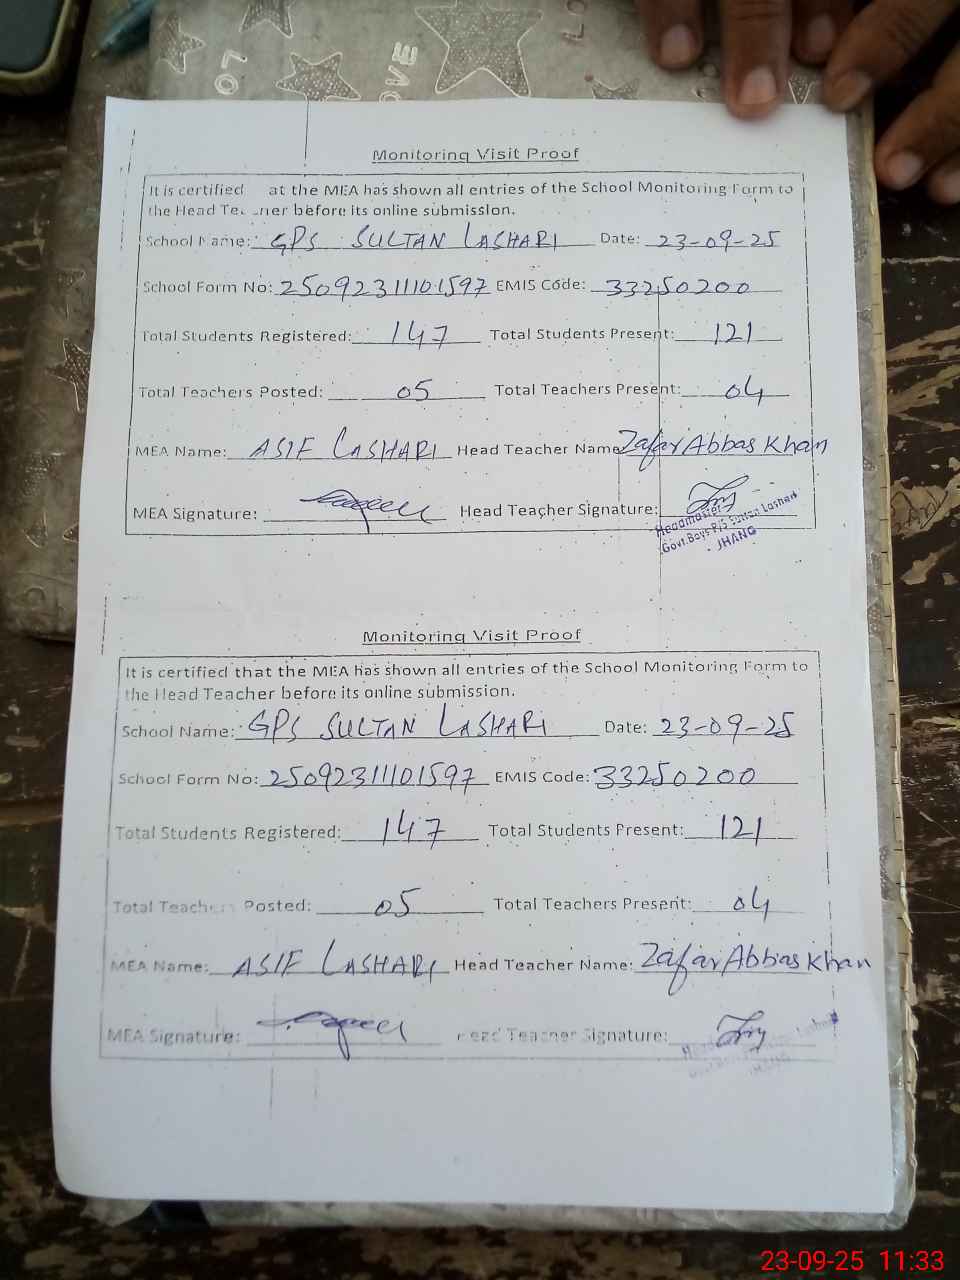 LOVE
Monitoring Visit Proof
It is certified at the MEA has shown all entries of the School Monitoring Form to
the Head Teacher before its online submission.
School Name: GPS SULTAN LASHARI Date: 23-09-25
School Form No: 25092311101597 EMIS Code: 33250200
Total Students Registered: 147 Total Students Present: 121
Total Teachers Posted: 05 Total Teachers Present: 04
MEA Name: ASIF LASHARI Head Teacher Name Zafar Abbas Khan
MEA Signature: Head Teacher Signature:
Headmaster
Govt. Boys P/S Sultan Lashari
JHANG
Monitoring Visit Proof
It is certified that the MEA has shown all entries of the School Monitoring Form to
the Head Teacher before its online submission.
School Name: GPS SULTAN LASHARI Date: 23-09-25
School Form No: 25092311101597 EMIS Code: 33250200
Total Students Registered: 147 Total Students Present: 121
Total Teachers Posted: 05 Total Teachers Present: 04
MEA Name: ASIF LASHARI Head Teacher Name: Zafar Abbas Khan
MEA Signature: Head Teacher Signature:
JHANG
23-09-25 11:33